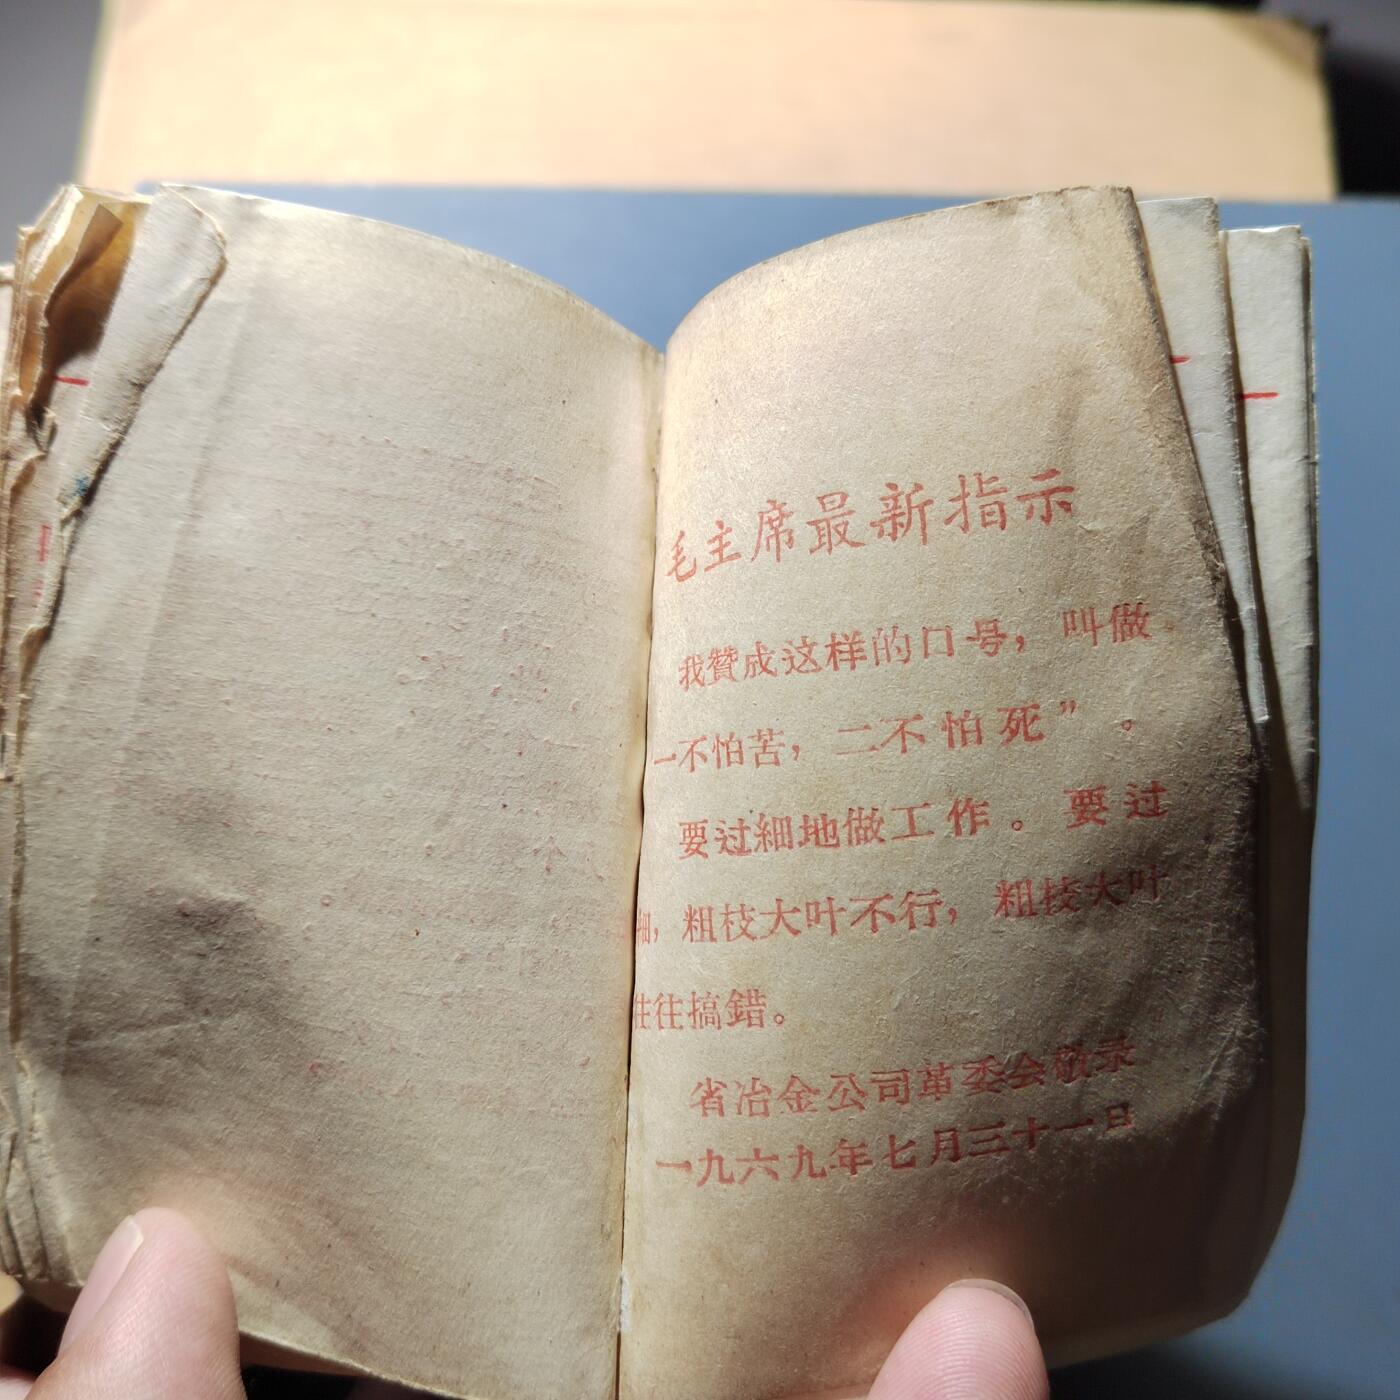 毛主席最新指示
我贊成这样的口号，叫做
一不怕苦，二不怕死”。
要过細地做工作。要过
細，粗枝大叶不行，粗枝大叶
往往搞錯。
省冶金公司革委会敬录
一九六九年七月三十一日